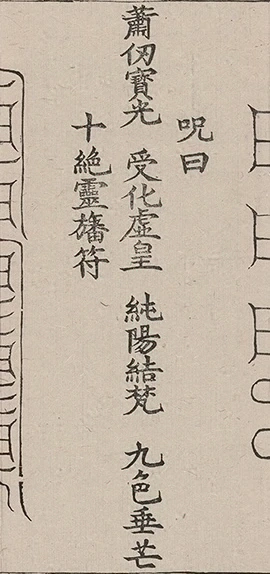 呪曰
蕭仞寶光 受化虚皇 純陽結梵 九色垂芒
十絶靈旛符